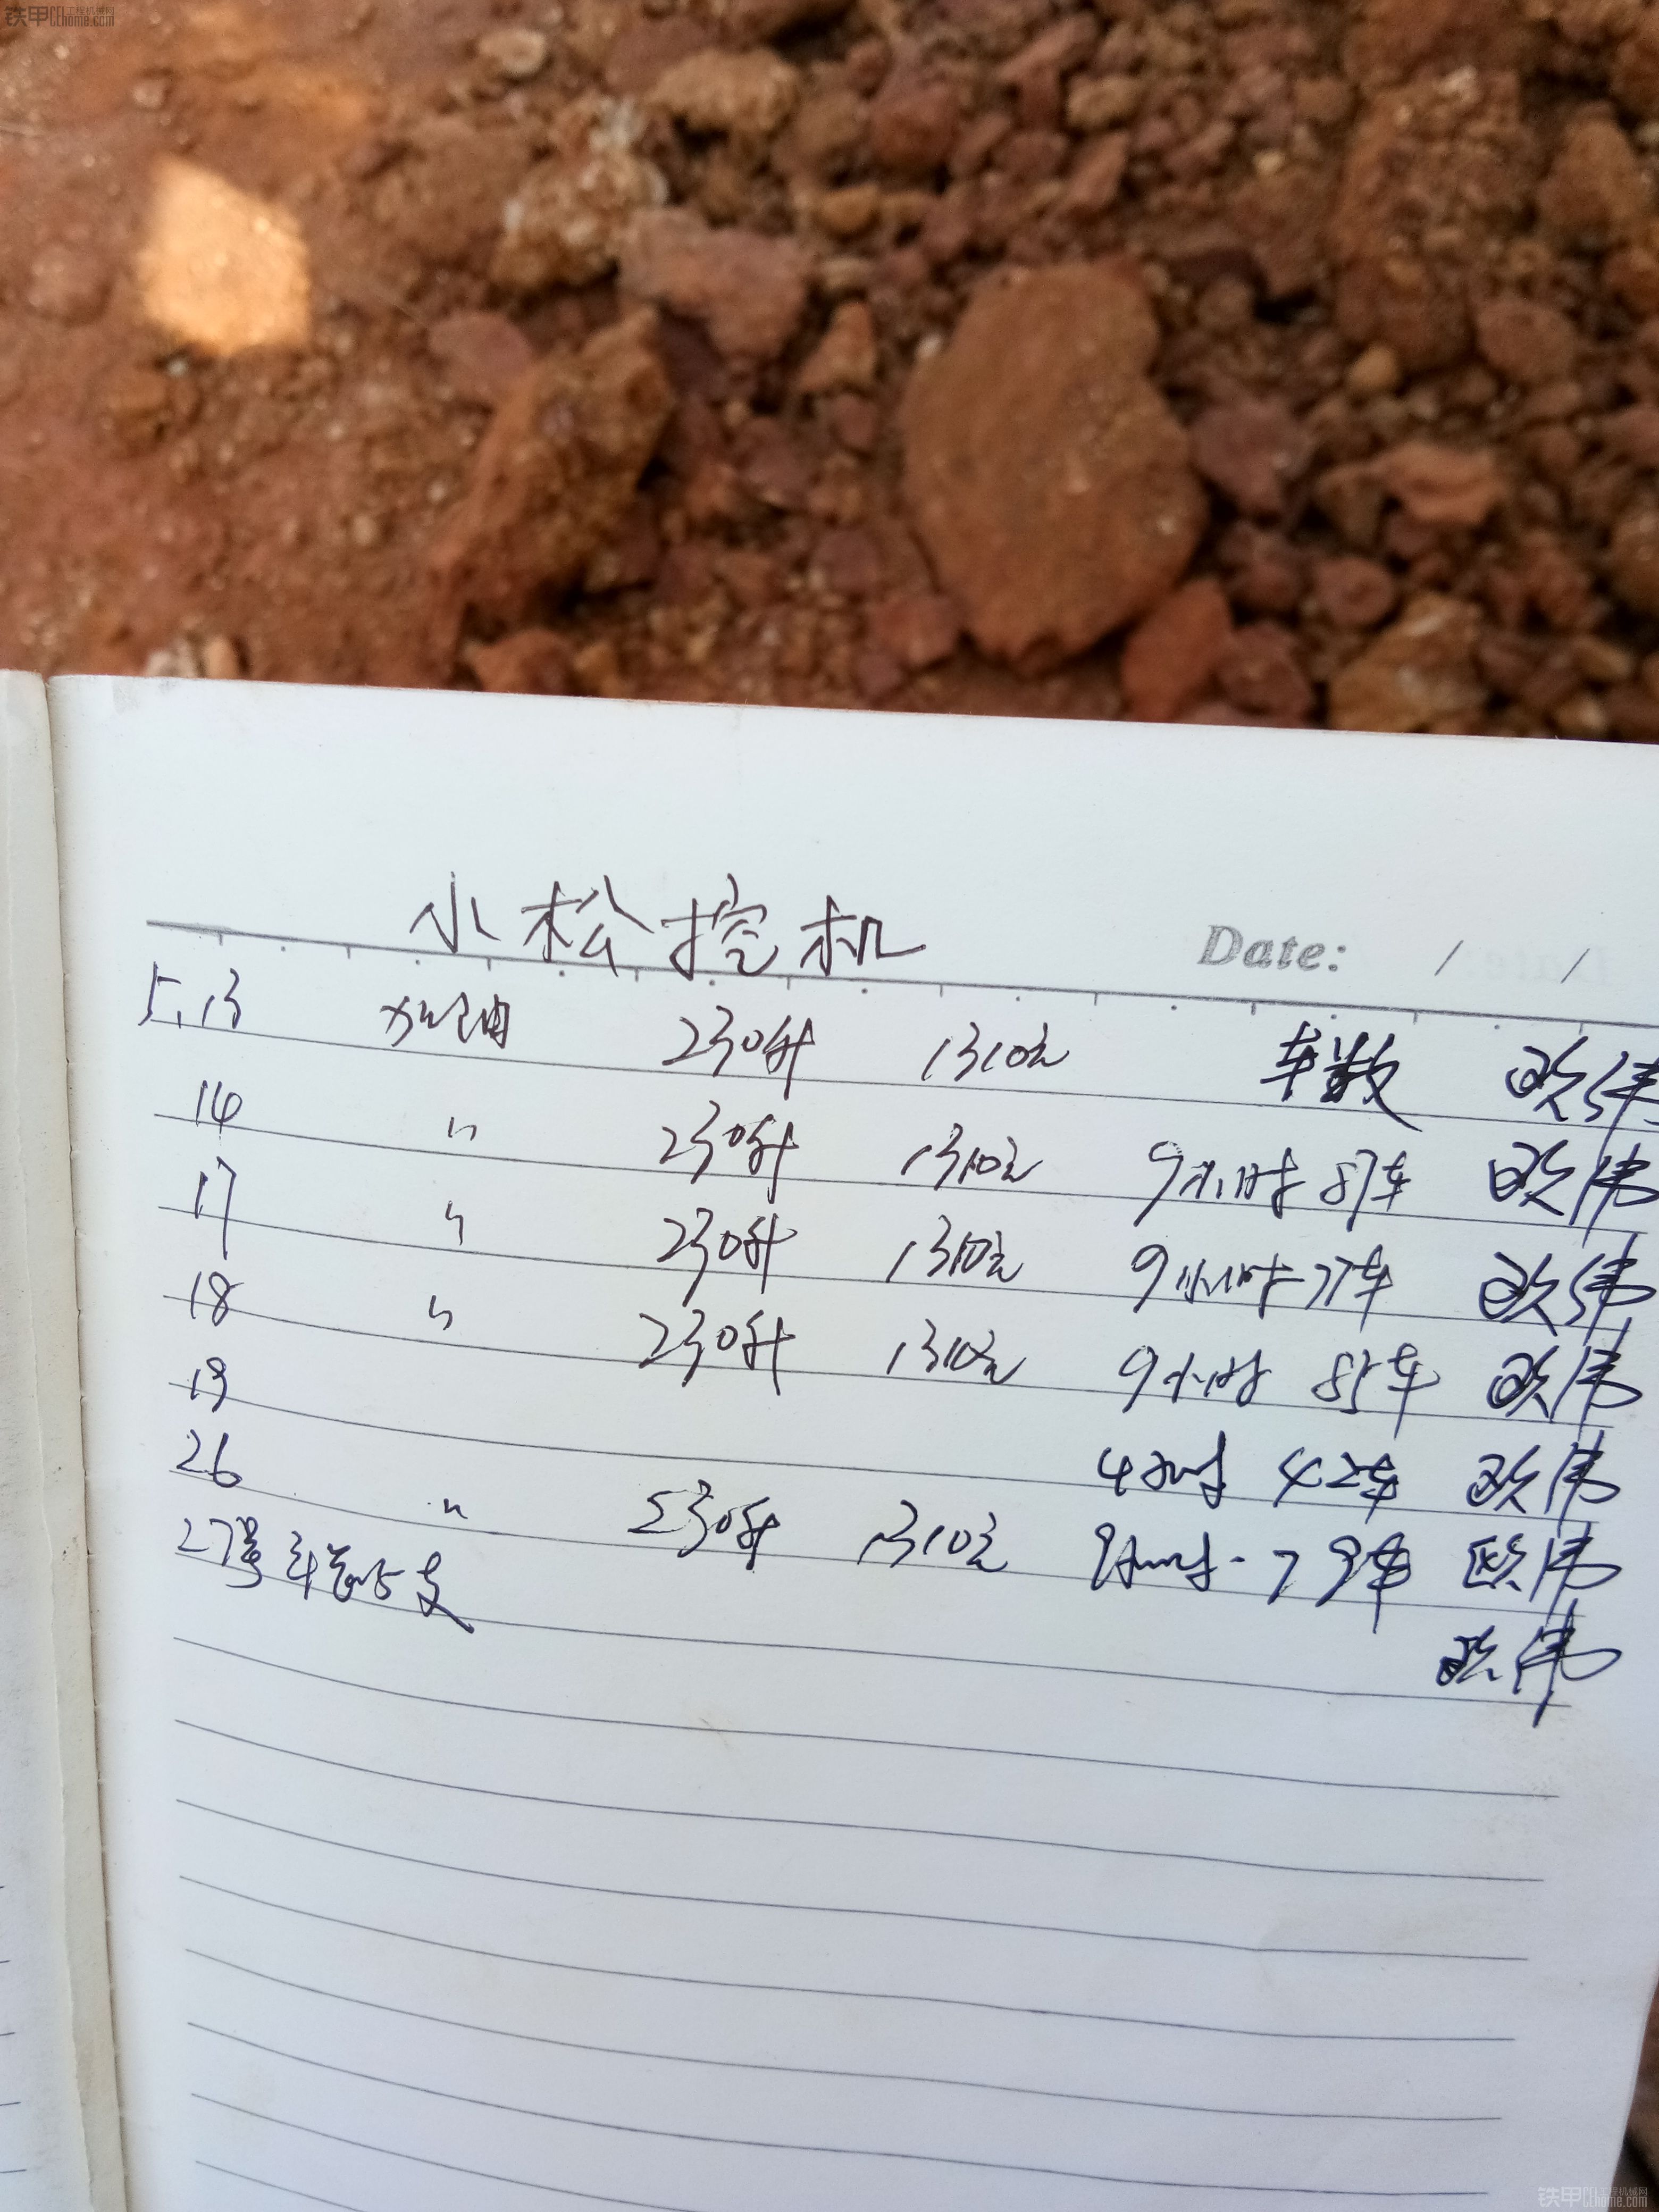 铁甲工程机械网
CEhome.com
小松挖机
Date: / /
5.13 加油 230升 1310元 车数 欧伟
14 〃 230升 1310元 9小时 87车 欧伟
17 〃 230升 1310元 9小时 77车 欧伟
18 〃 230升 1310元 9小时 85车 欧伟
19 4小时 42车 欧伟
26 〃 230升 1310元 9小时 79车 欧伟
27号 支 欧伟
铁甲工程机械网
CEhome.com